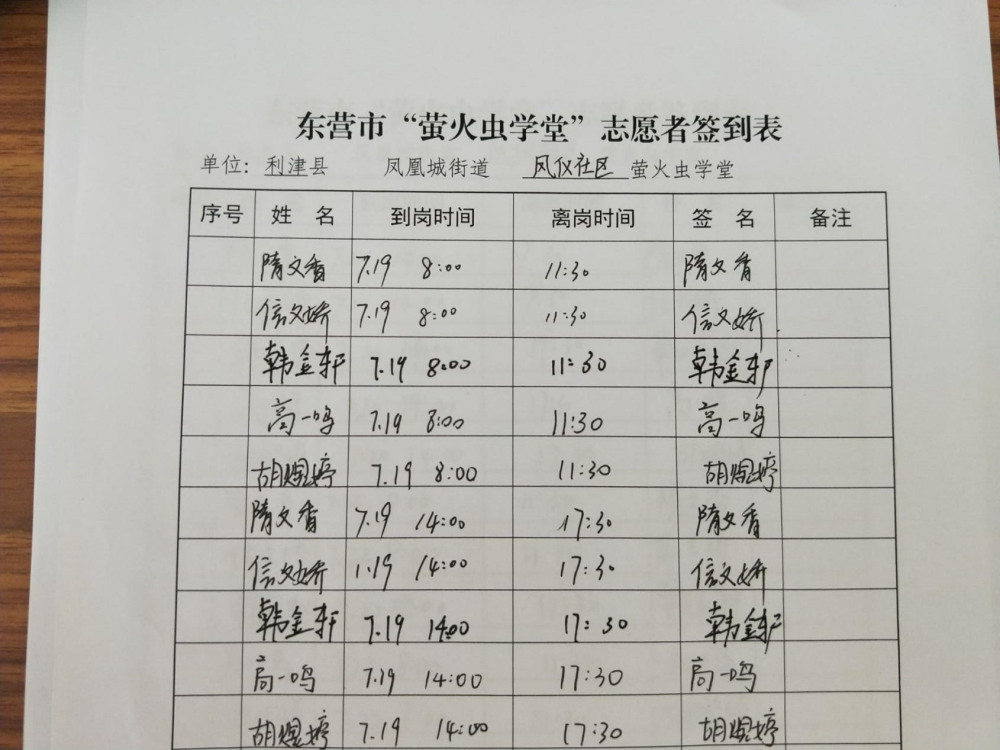 东营市“萤火虫学堂”志愿者签到表
单位：利津县 凤凰城街道 凤仪社区 萤火虫学堂
序号 姓名 到岗时间 离岗时间 签名 备注
隋文香 7.19 8:00 11:30 隋文香
信文娇 7.19 8:00 11:30 信文娇
韩金轩 7.19 8:00 11:30 韩金轩
高一鸣 7.19 8:00 11:30 高一鸣
胡煜婷 7.19 8:00 11:30 胡煜婷
隋文香 7.19 14:00 17:30 隋文香
信文娇 7.19 14:00 17:30 信文娇
韩金轩 7.19 14:00 17:30 韩金轩
高一鸣 7.19 14:00 17:30 高一鸣
胡煜婷 7.19 14:00 17:30 胡煜婷